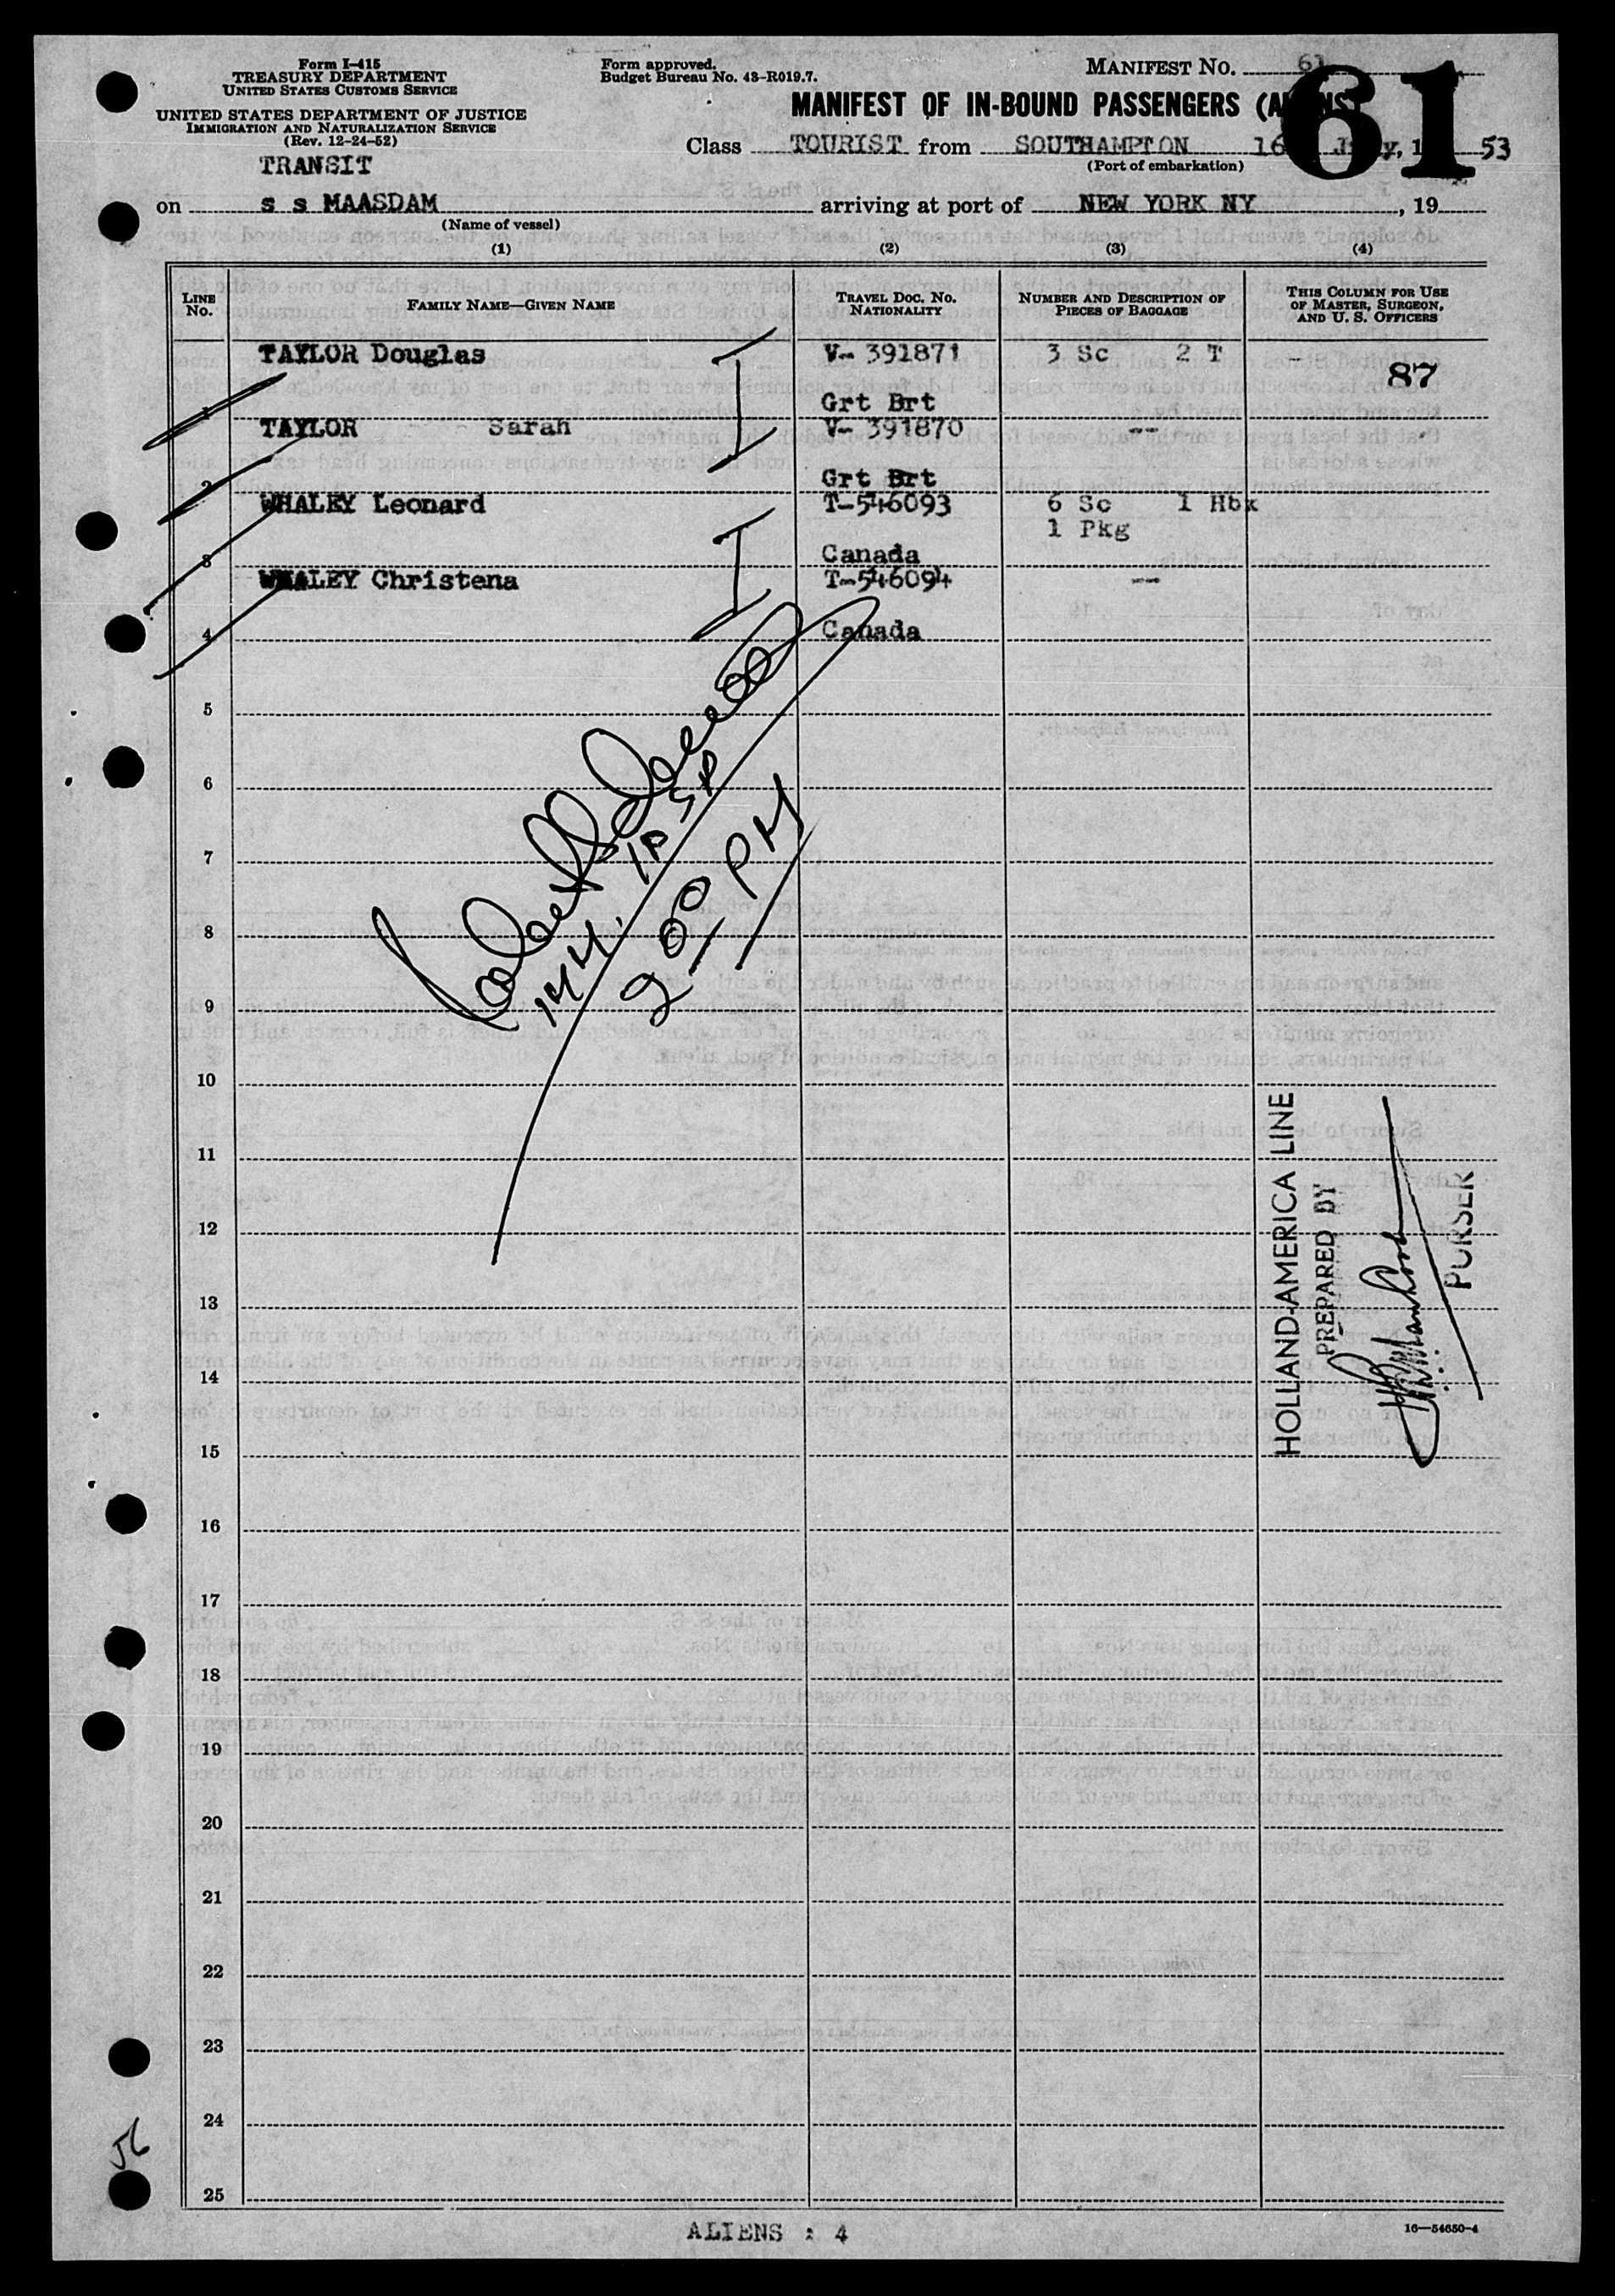 Form I-415
TREASURY DEPARTMENT
UNITED STATES CUSTOMS SERVICE
UNITED STATES DEPARTMENT OF JUSTICE
IMMIGRATION AND NATURALIZATION SERVICE
(Rev. 12-24-52)
TRANSIT
Form approved.
Budget Bureau No. 43-R019.7.
MANIFEST NO. 61
61
MANIFEST OF IN-BOUND PASSENGERS
Class TOURIST from SOUTHAMPTON 16 53
(Port of embarkation)
on s s MAASDAM arriving at port of NEW YORK NY , 19
(Name of vessel)
(1) (2) (3) (4)
LINE No. FAMILY NAME—GIVEN NAME TRAVEL DOC. NO. NATIONALITY NUMBER AND DESCRIPTION OF PIECES OF BAGGAGE THIS COLUMN FOR USE OF MASTER, SURGEON, AND U. S. OFFICERS
TAYLOR Douglas I V- 391871 3 Sc 2 T -
87
1 Grt Brt
TAYLOR Sarah V- 391870 --
2 Grt Brt
WHALEY Leonard I T-546093 6 Sc 1 Hbx
1 Pkg
3 Canada
WHALEY Christena T-546094 --
4 Canada
5
6
7
8
9
10
11
12
13
14
15
16
17
18
19
20
21
22
23
24
25
2 00 PM
HOLLAND-AMERICA LINE
PREPARED BY
PURSER
56
ALIENS : 4
16—54650-4